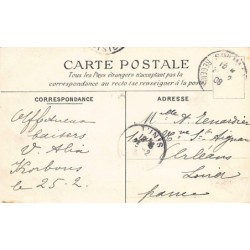 CARTE POSTALE
Tous les Pays étrangers n'acceptant pas la
correspondance au recto (se renseigner à la poste)
CORRESPONDANCE
ADRESSE
Affectueux
baisers
V. Alia
Korbous
le 25.2.
Melle A. Lenardier
Rue St Aignan
Orléans
Loiret
France
TUNIS